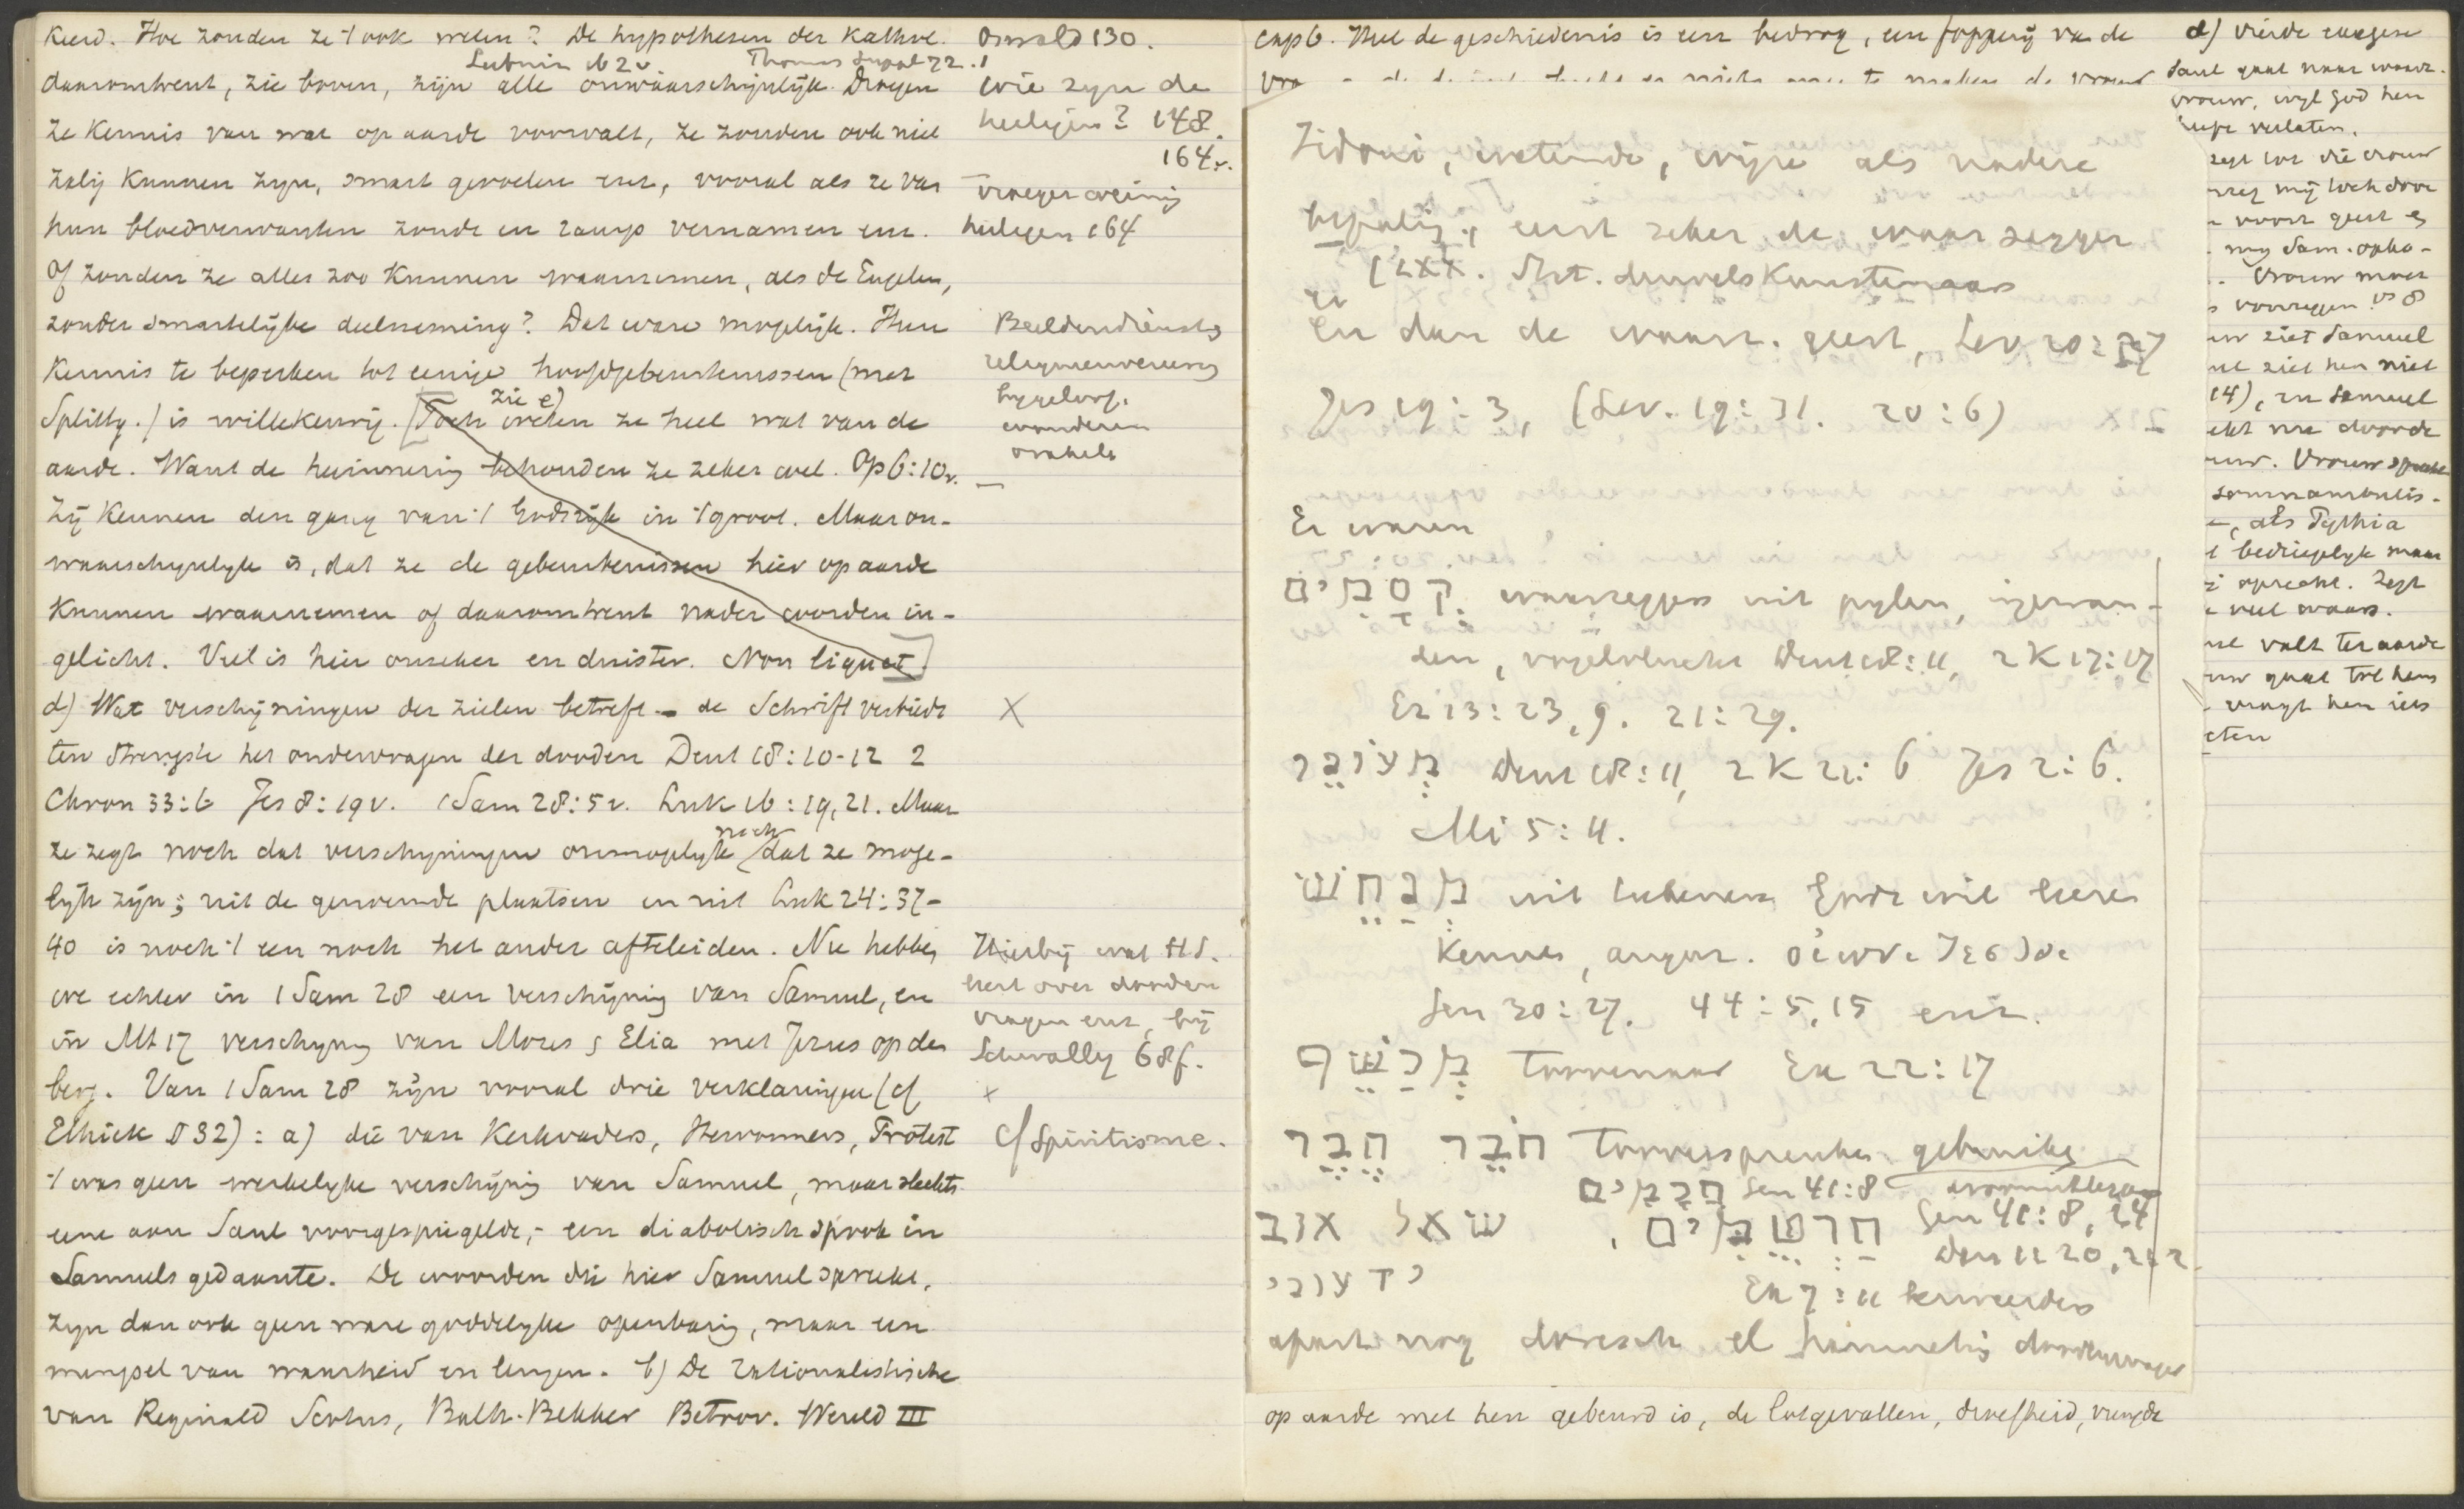 keerd. Hoe zouden ze 't ook weten? De hypothesen der Kathol.
daaromtrent, zie boven, zijn alle onwaarschijnlijk. Dragen
ze kennis van wat op aarde voorvalt, ze zouden ook niet
zalig kunnen zijn, smart gevoelen enz., vooral als ze van
hun bloedverwanten zonde en ramp vernamen enz.
Of zouden ze alles zoo kunnen waarnemen, als de Engelen,
zonder smartelijke deelneming? Dat ware mogelijk. Hun
kennis te beperken tot eenige hoofdgebeurtenissen (met
Splittg.) is willekeurig. [Toch weten ze heel wat van de
zie e)
aarde. Want de herinnering behouden ze zeker wel. Op 6:10v.
Zij kennen den gang van 't Godsrijk in 't groot. Maar on-
waarschijnlijk is, dat ze de gebeurtenissen hier op aarde
kunnen waarnemen of daaromtrent nader worden in-
gelicht. Veel is hier onzeker en duister. Non liquet]
d) Wat verschijningen der zielen betreft - de Schrift verbiedt
ten strengste het ondervragen der dooden Deut 18:10-12 2
Chron 33:6 Jes 8:19v. 1 Sam 28:5v. Luk 16:19,21. Maar
ze zegt noch dat verschijningen onmogelijk noch dat ze moge-
lijk zijn; uit de genoemde plaatsen en uit Luk 24:37-
40 is noch 't een noch het ander afteleiden. Nu hebben
we echter in 1 Sam 28 een verschijning van Samuel, en
in Mt 17 verschijning van Mozes & Elia met Jezus op den
berg. Van 1 Sam 28 zijn vooral drie verklaringen (cf
Ethiek § 32): a) die van Kerkvaders, Hervormers, Protest
't was geen werkelijke verschijning van Samuel, maar slechts
eene aan Saul voorgespiegelde, - een diabolisch spook in
Samuels gedaante. De woorden die hier Samuel spreekt,
zijn dan ook geen ware goddelijke openbaring, maar een
mengsel van waarheid en leugen. b) De rationalistische
van Reginald Scotus, Balth. Bekker Betoov. Wereld III
Oswald 130.
Wie zijn de
heiligen? 148.
164v.
vroeger weinig
heiligen 164
Beeldendienst &
bijgeloof.
wonderen
orakels
X
Hierbij wat HS.
leert over dooden
vragen enz, bij
Schwally 68f.
x
cf Spiritisme.
cap 6. Heel de geschiedenis is een bedrog, een fopperij van de
Zidoni, wetende, wijze als nadere
bepaling, eerst zeker de waarzegger
(LXX. Stat. duivelskunstenaars
en dan de waarz. geest, Lev 20:27
Jes 19:3, (Lev. 19:31. 20:6)
Er waren
קֹסְמִים waarzeggers uit pijlen, ingewan-
den, vogelvlucht Deut 18:11, 2 K 17:17
Ez 13:23, 9. 21:29.
מְעוֹנֵן Deut 18:11, 2 K 21:6 Jes 2:6.
Mi 5:11.
מְנַחֵשׁ uit teekenen Gods wil leeren
kennen, augur.
Gen 30:27. 44:5,15 enz.
מְכַשֵּׁף Toovenaar Ex 22:17
חֹבֵר חֶבֶר Tooverspreuken gebruiken
חֲכָמִים Gen 41:8
שאל אוב חַרְטֻמִּים, Gen 41:8, 24
Dan 1:20, 2:2.
Ex 7:11
apart nog doresch el hammetim doodenvrager
op aarde met hen gebeurd is, de lotgevallen, droefheid, vreugde
d) vierde exegese
Saul gaat naar waarz.
vrouw, wijl God hem
heeft verlaten.
zegt tot die vrouw
mij toch door
voorz geest &
mij Sam. opko-
Vrouw moet
voorzeggen vs 8
ziet Samuel
ziet hem niet
14), en Samuel
nu door de
Vrouw spreekt
somnambulis-
als Pythia
bedriegelijk maar
oprecht. Zegt
veel waars.
valt ter aarde
gaat tot hem
vraagt hem iets
eten